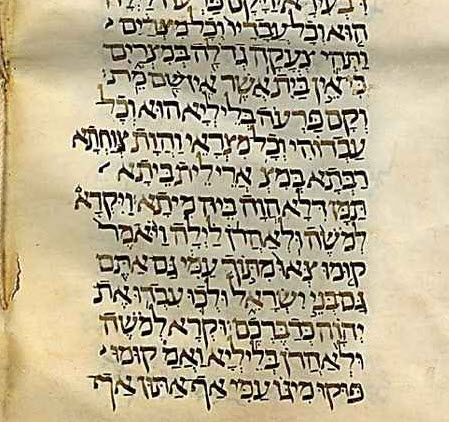 ויקם פרעה לילה
הוא וכל עבדיו וכל מצרים
ותהי צעקה גדלה במצרים
כי אין בית אשר אין שם מת
וקם פרעה בליליא הוא וכל
עבדוהי וכל מצראי והות צוחתא
רבתא במצ ארי לית ביתא
תמן דלא הוה ביה מיתא ויקרא
למשה ולאהרן לילה ויאמר
קומו צאו מתוך עמי גם אתם
גם בני ישראל ולכו עבדו את
יהוה כדברכם וקרא למשה
ולאהרן בליליא ואמ קומו
פוקו מיגו עמי אף אתון אף